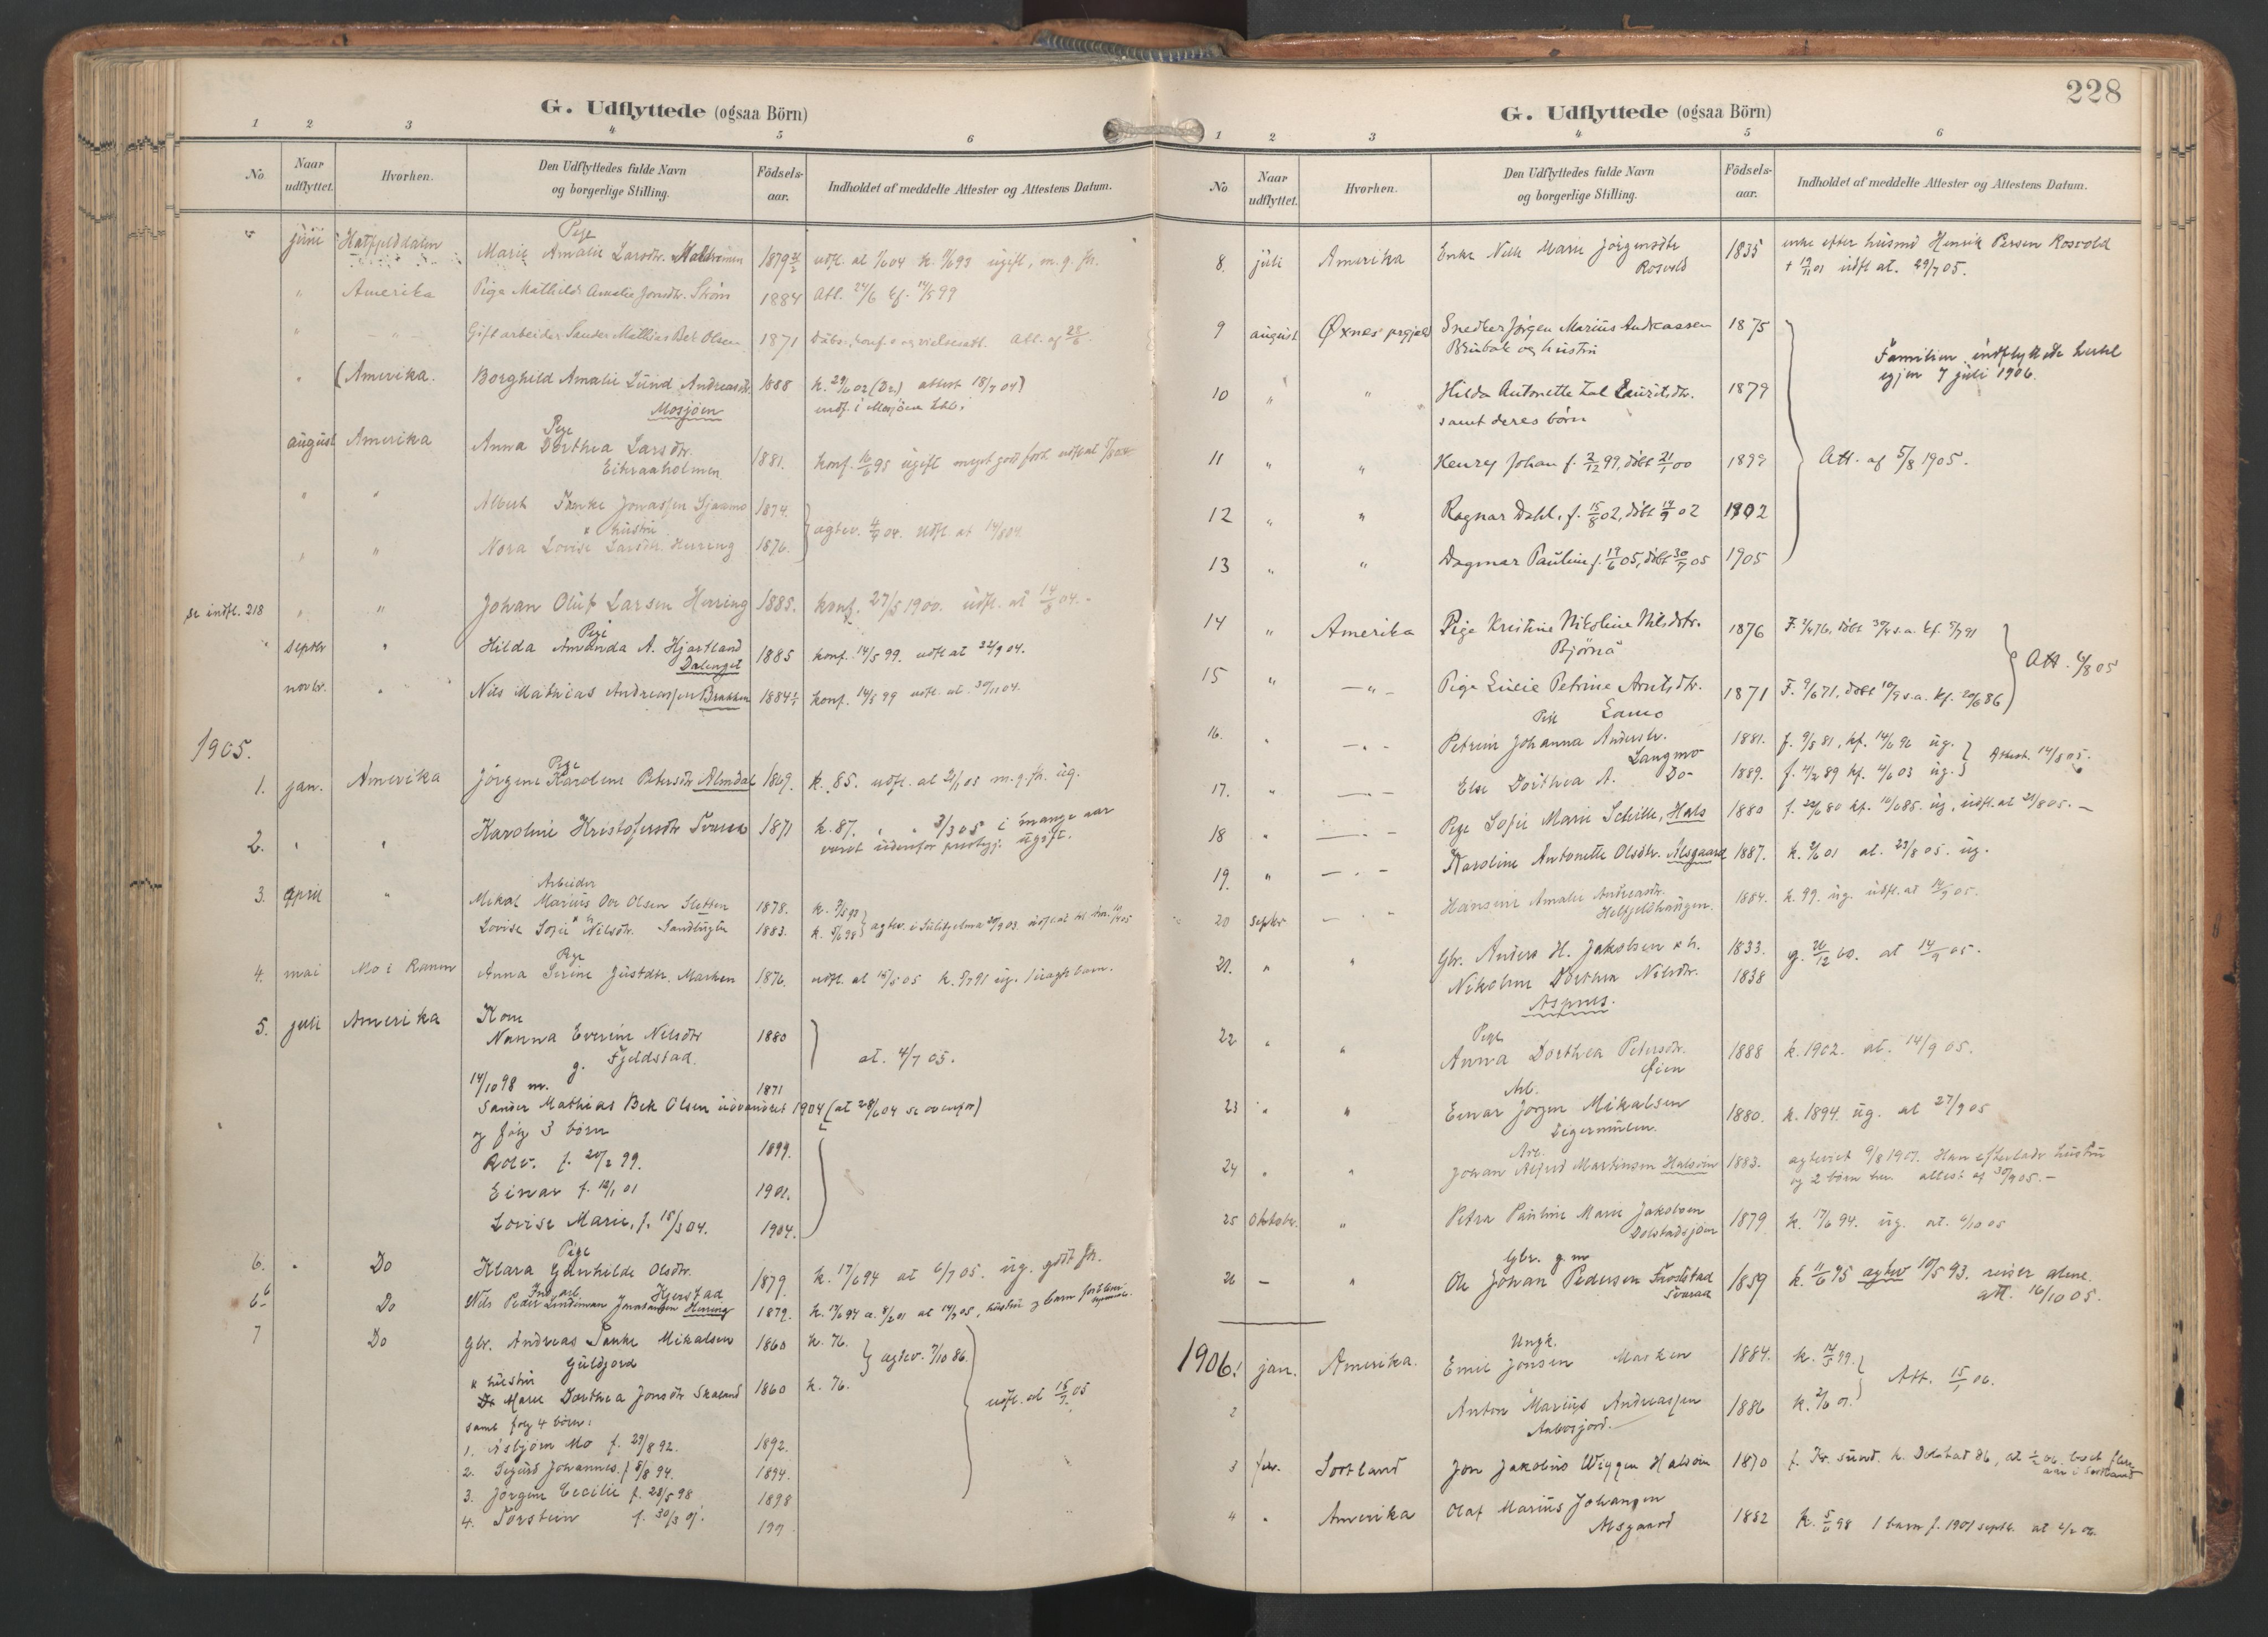 G. Udflyttede (ogsaa Börn)
1 2 3 4 5 6
No Naar udflyttet. Hvorhen. Den Udflyttedes fulde Navn og borgerlige Stilling. Födsels-aar. Indholdet af meddelte Attester og Attestens Datum.
Pige
juni Hatfjelddalen Marie Amalie Larsdtr. 1879 ugift, m. g. fh.
" Amerika Pige Mathilde Amalie Jonsdtr. Ström 1884 Att. 24/6 kf. 14/5 99
" - " - Gift arbeider Sander Mathias Bek Olsen 1871 Daabs-, konf. og vielsesatt. Att. af 28/6
" (Amerika. Borghild Amalie Lund Andreasdtr. 1888 k. 29/6 02 (Dr.) attest 18/7 04)
Mosjöen
Pige
august Amerika Anna Dorthea Larsdtr. 1881. konf. 16/6 95 ugift meget god forh.
Eiteraaholmen
" " Albert Jonassen 1874.
x hustru } agtev. 4/7 04. udfl. at 14/8 04.
" " Nora Lovise Larsdtr. Herring 1876.
se indfl. 218 " " Johan Oluf Larsen Herring 1885. konf. 27/5 1900. udfl. at 14/8 04.
Pige
" septbr " Hilda Amanda A. Hjortland 1885 konf. 14/5 99. udfl at 22/9 04.
Dalenget
novbr. " Nils Mathias Andreassen Brekken 1884 konf. 14/5 99 udfl. at. 30/11 04.
1905.
Pige
1. jan. Amerika Jörgine Karoline Petersdtr Almdal 1869. k. 85. udfl. at 21/1 05 m. g. fh. ug.
2. " " Karoline Kristofersdtr Svaraa 1871 k. 87. " " 3/3 05 i mange aar
været udenfor prestegj. ugift.
Arbeider
3. april " Mikal Marius Ove Olsen Sletten 1878.
x h
Lovise Sofie Nilsdtr. 1883. agtev. i Sulitjelma
Pige
4. mai Mo i Ranen Anna Serine Justdtr. Marken 1876. udfl. at 15/5 05 k. 5/7 91 ug.
5. juli Amerika Kone
Nanna Everine Nilsdtr 1880
g. Fjeldstad. at. 4/7 05.
14/10 98 m. 1871
Sander Mathias Bek Olsen udvandret 1904 (at 28/6 04 se ovenfor)
og fölg 3 börn
Rolv. f. 20/2 99. 1899.
Einar f. 12/1 01 1901.
Lovise Marie, f. 15/3 04. 1904.
Pige
6. " Do Klara Gunhilde Olsdtr. 1879. k. 17/6 94 at 6/7 05. ug. godt fh.
Hjerstad
6b Do Nils Peder Lindeman Jonassen Herring 1879. k. 17/6 94 at 14/7 05, hustru og barn
7 Do Gbr. Andreas Tanke Mikalsen 1860 k. 76.
Guldjord } agtev. 7/10 86.
x hustru
Marie Dorthea Jonsdtr Skaland 1860 k. 76. udfl. at 15/7 05
samt fölg 4 börn:
1. Asbjörn Mo f. 29/8 92. 1892.
2. Sigurd Johannes f 5/8 94. 1894.
3. Jörgine Cecilie f. 28/5 98 1898
4. Torstein f. 30/3 01.
228
G. Udflyttede (ogsaa Börn)
1 2 3 4 5 6
No Naar udflyttet. Hvorhen. Den Udflyttedes fulde Navn og borgerlige Stilling. Födsels-aar. Indholdet af meddelte Attester og Attestens Datum.
8. juli Amerika Enke Marie Jörgensdtr 1835 enke efter husmd Henrik Persen Rosvold
Rosvold + 19/11 01 udfl at. 29/7 05.
9 august Øxnes prgjæld Snedker Jörgen Marius Andreassen 1875
Brubak og hustru Familien indflyttede hertil
igjen 7 juli 1906.
10 " " Hilda Antonette Dal Lauritsdtr. 1879
samt deres börn
11 " " Henry Johan f. 2/12 99, döbt 21/1 00 1899 Att. af 5/8 1905.
12 " " Ragnar Dahl, f. 15/8 02, döbt 14/9 02 1902
13 " " Dagmar Pauline f. 19/6 05, döbt 30/7 05 1905
14 " Amerika Pige Kristine Nikoline Nilsdtr. 1876 F. 2/4 76, döbt 30/4 s.a. kf. 5/7 91
Björnå } Att. 4/8 05
15 " - " - Pige Lucie Petrine Arntsdtr. 1871 F. 9/6 71, döbt 10/9 s.a. kf. 20/6 86
Pige
16. " - " - Petrine Johanna Andersdtr. 1881. f. 9/8 81, kf. 14/6 96 ug.
Langmo } Attest. 14/8 05.
17. " - " - Else Dorthea A. Do- 1889. f. 4/2 89 kf. 4/6 03 ug.
18 " - " - Pige Sofie Marie Schille, Hals 1880 ug, udfl. at 21/8 05.
19. " - " - Karoline Antonette Olsdtr. Alsgaard 1887. k. 2/6 01 at. 23/8 05. ug.
20 septbr - " - Hansine Amalie Andreasdtr. 1884. k. 99. ug. udfl. at 14/9 05.
Helfjeldhaugen.
21. " " Gbr. Anders H. Jakobsen x h. 1833. g. 26/12 60. at 14/9 05.
Nikoline Dorthea Nilsdtr. 1838
Aspnes.
Pige
22 " " Anna Dorthea Petersdtr. 1888 k. 1902. at. 14/9 05.
Øien
Arb.
23 " " Einar Jörgen Mikalsen 1880. k. 1894. ug. at 27/9 05
Digermulen.
Arb.
24 " " Johan Alfred Martinsen Halsøien 1883. agteviet 9/8 1901. Han efterlader hustru
og 2 börn her. attest af 30/9 05.
25 Oktober. " Petra Pauline Marie Jakobsen 1879 k. 17/6 94. ug. at. 6/10 05
Dolstadsjöen
Gbr. g m
26 - " Ole Johan Pedersen Troststad 1859 k. 11/6 75 agtev 10/5 93. reiser alene.
Svaraa att. 16/10 05.
Ungk.
1906! jan. Amerika. Emil Jonsen Marken 1884. k. 14/5 99.
} Att. 15/1 06.
2 Anton Marius Andreassen 1886 k. 2/6 01.
3 febr. Sortland Jon Jakobus Weggen Halsøien 1870 f. Kr. sund. k. Dolstad 86, at 1/2 06. boet flere
aar i Sortland
4 " Amerika Olaf Marius Johansen 1882 k. 5/6 98 1 barn f. 1901 septbr. at 2/2 06.
Alsgaard